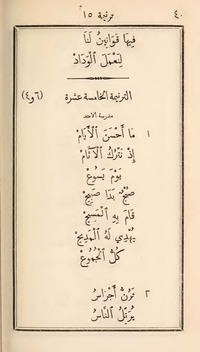 ٤٠ ترنيمة ١٥
فِيهَا قَوَانِينُ لَنَا
لِنَعْمَلَ ٱلْوِدَادْ
الترنيمة الخامسة عشرة (٦و٤)
مدرسة الاحد
١ مَا أَحْسَنَ ٱلْأَيَّامْ
إِذْ نَتْرُكُ ٱلْآثَامْ
يَوْمَ يَسُوعْ
صُبْحٌ بَدَا صَبِيحْ
قَامَ بِهِ ٱلْمَسِيحْ
يُهْدِي لَهُ ٱلْمَدِيحْ
كُلُّ ٱلْجُمُوعْ
٢ تَرِنُّ أَجْرَاسُ
يُرَتِّلُ ٱلنَّاسُ